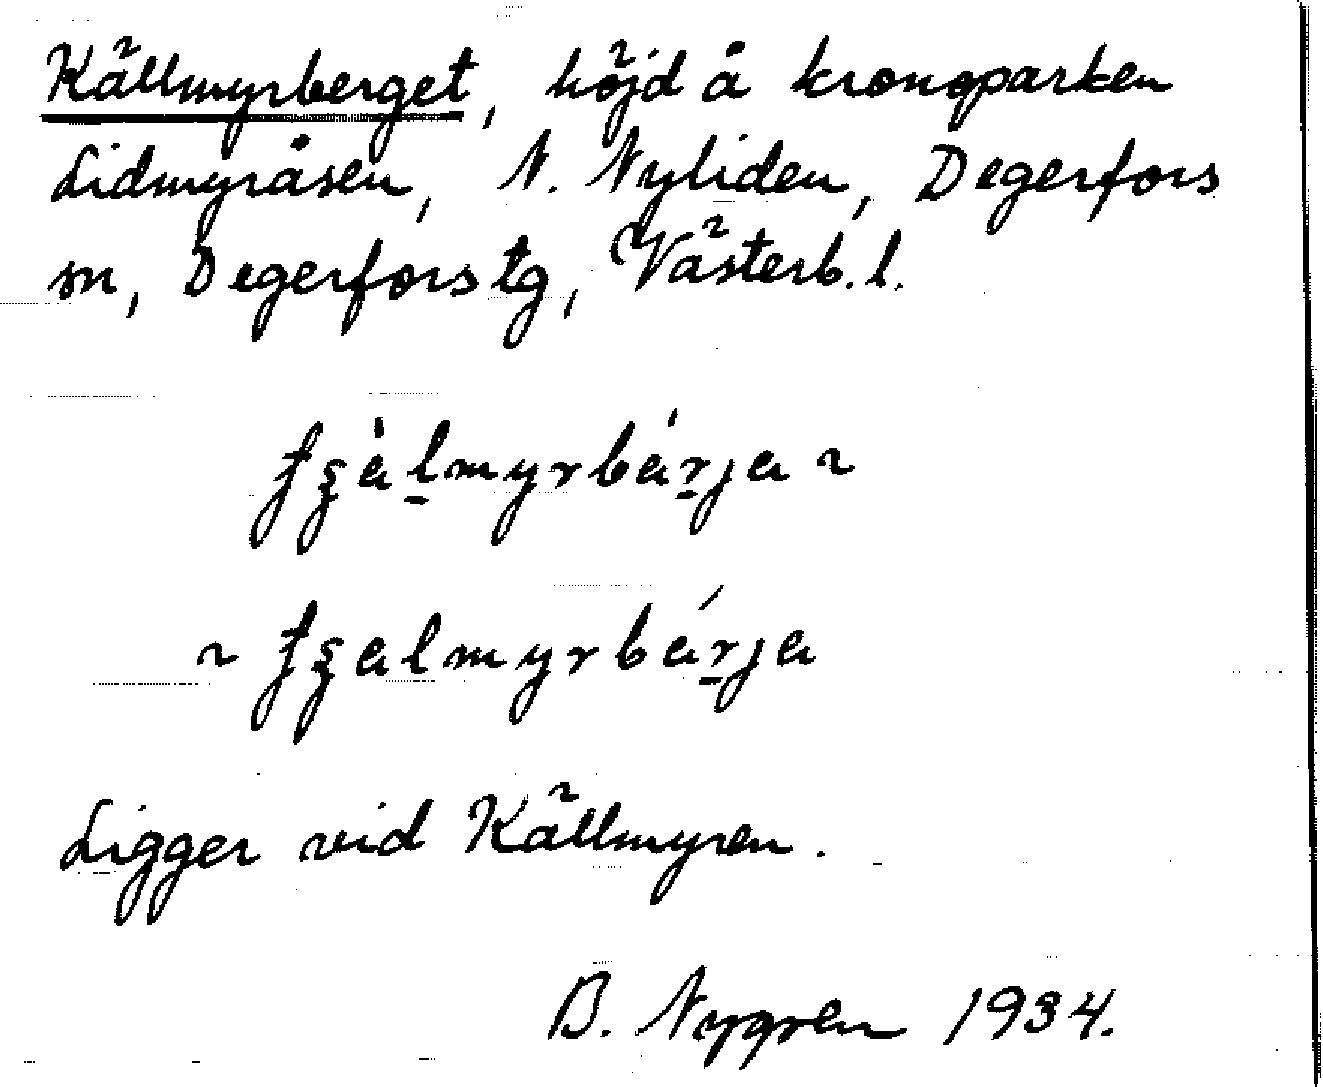 Källmyrberget, höjd å kronoparken
Lidmyråsen, N. Nyliden, Degerfors
sn, Degerfors tg, Västerb. l.
ʈʂàl̠myrbár̠ja ~
~ ʈʂalmyrbár̠ja
Ligger vid Källmyren.
B. Nygren 1934.